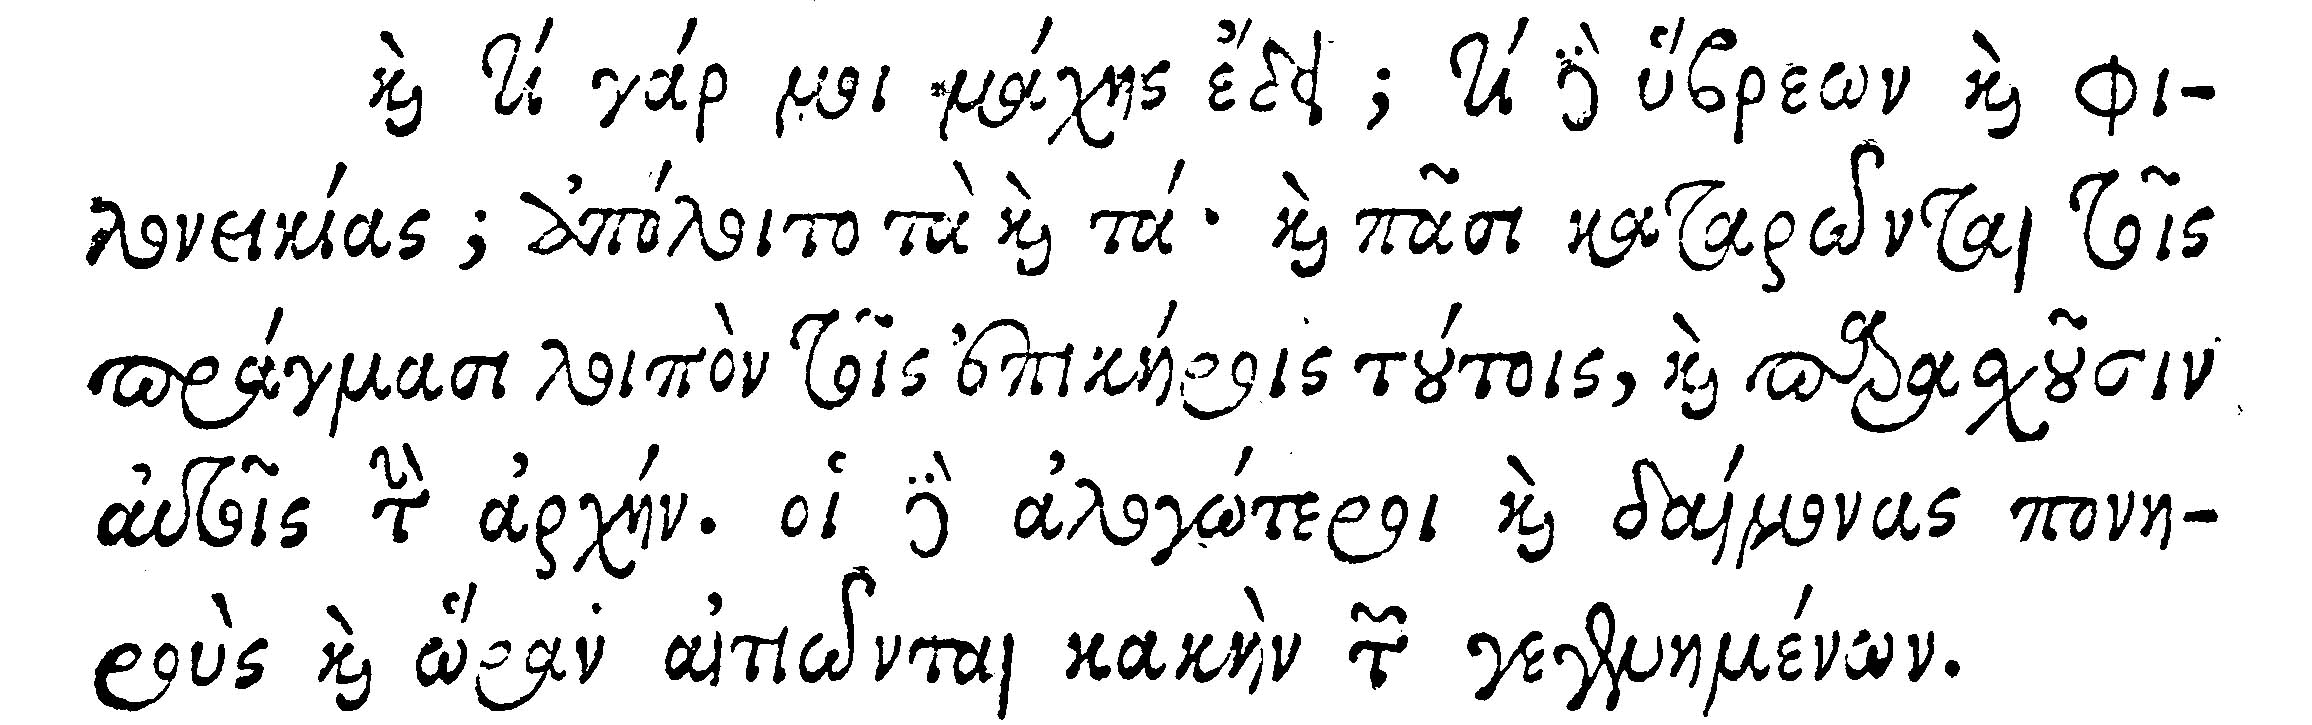 καὶ τί γάρ μοι μάχης ἔδει; τί δὲ ὕβρεων καὶ φι-
λονεικίας; ἀπόλοιτο τὰ καὶ τά· καὶ πᾶσι καταρῶνται τοῖς
πράγμασι λοιπὸν τοῖς ἐπικήροις τούτοις, καὶ παρασχοῦσιν
αὐτοῖς τὴν ἀρχήν. οἱ δὲ ἀλογώτεροι καὶ δαίμονας πονη-
ροὺς καὶ ὥραν αἰτιῶνται κακὴν τῶν γεγενημένων.